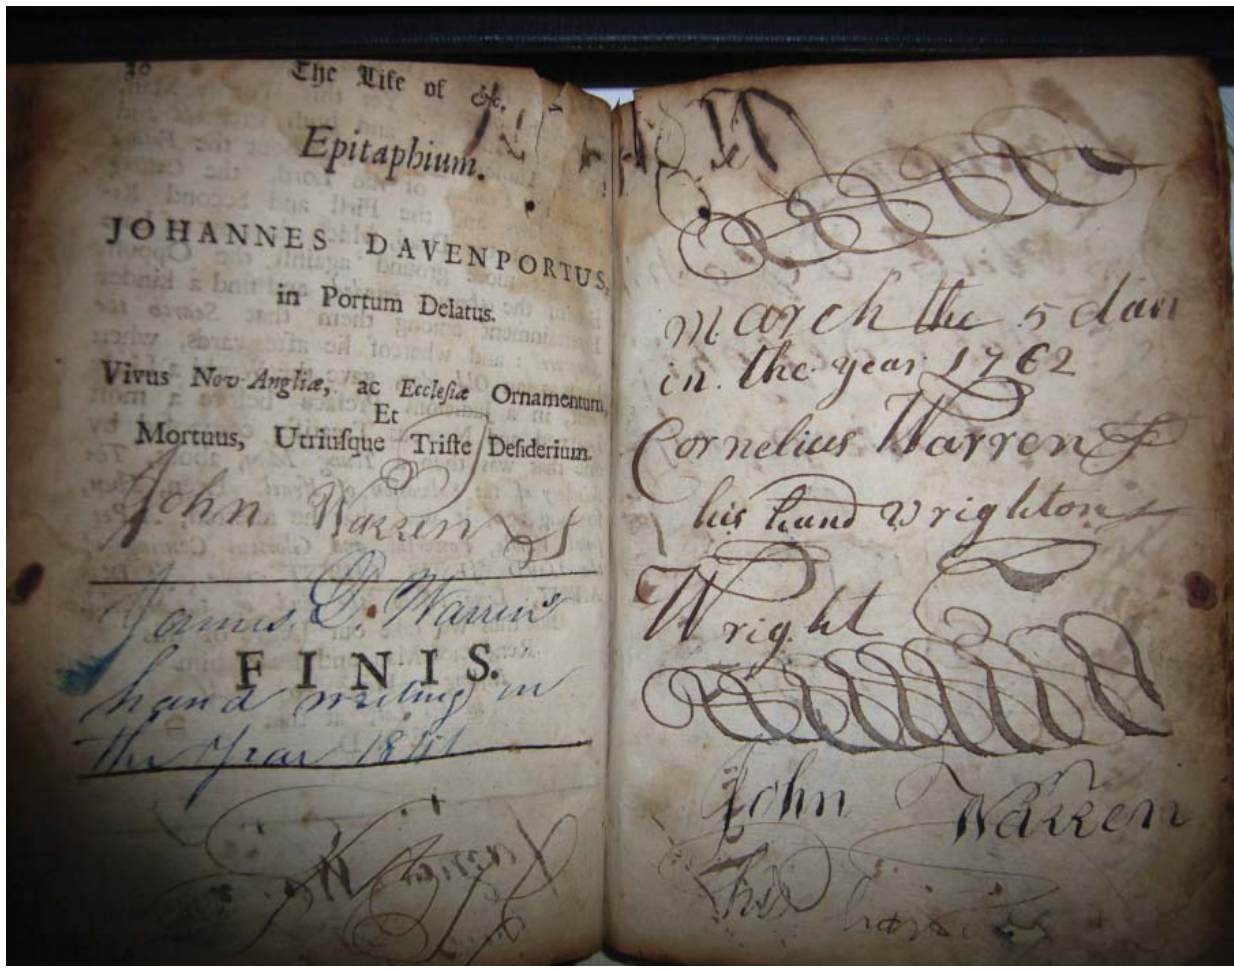 The Life of &c.
Epitaphium.
JOHANNES DAVENPORTUS,
in Portum Delatus.
Vivus Nov-Angliæ, ac Ecclesiæ Ornamentum,
Et
Mortuus, Utriusque Triste Desiderium.
John Warren
James D. Warren's
FINIS.
hand writing in
the Year
March the 5 day
in the year 1762
Cornelius Warren
his hand wrighton
Wright
John Warren
His